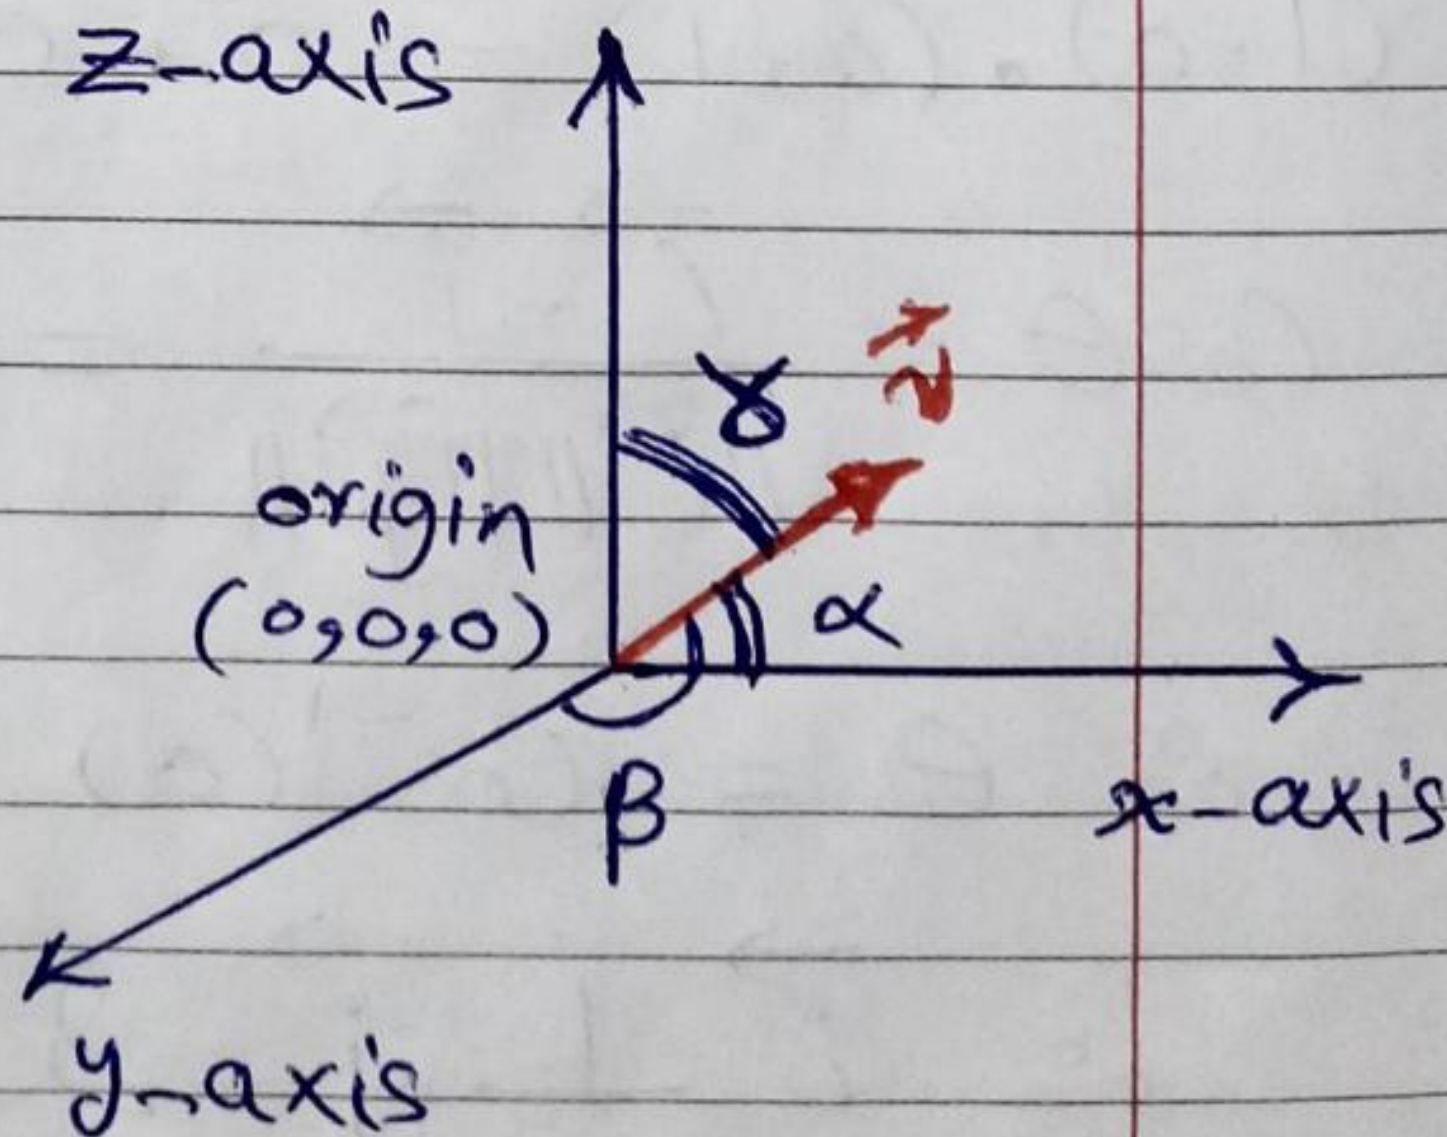 z-axis
v⃗
γ
origin
(0,0,0)
α
β
x-axis
y-axis